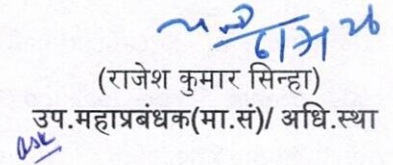 (राजेश कुमार सिन्हा)
उप.महाप्रबंधक(मा.सं)/ अधि.स्था